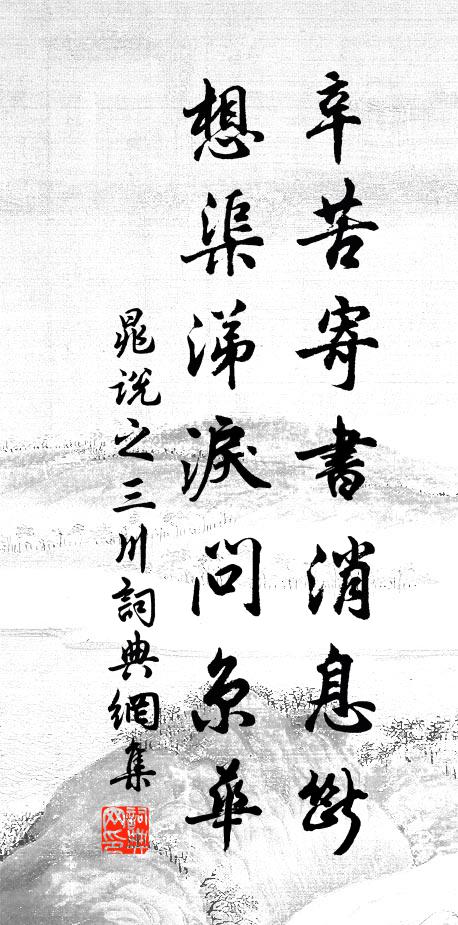 辛苦寄書消息斷
想渠涕淚問京華
晁說之三川詞典網集